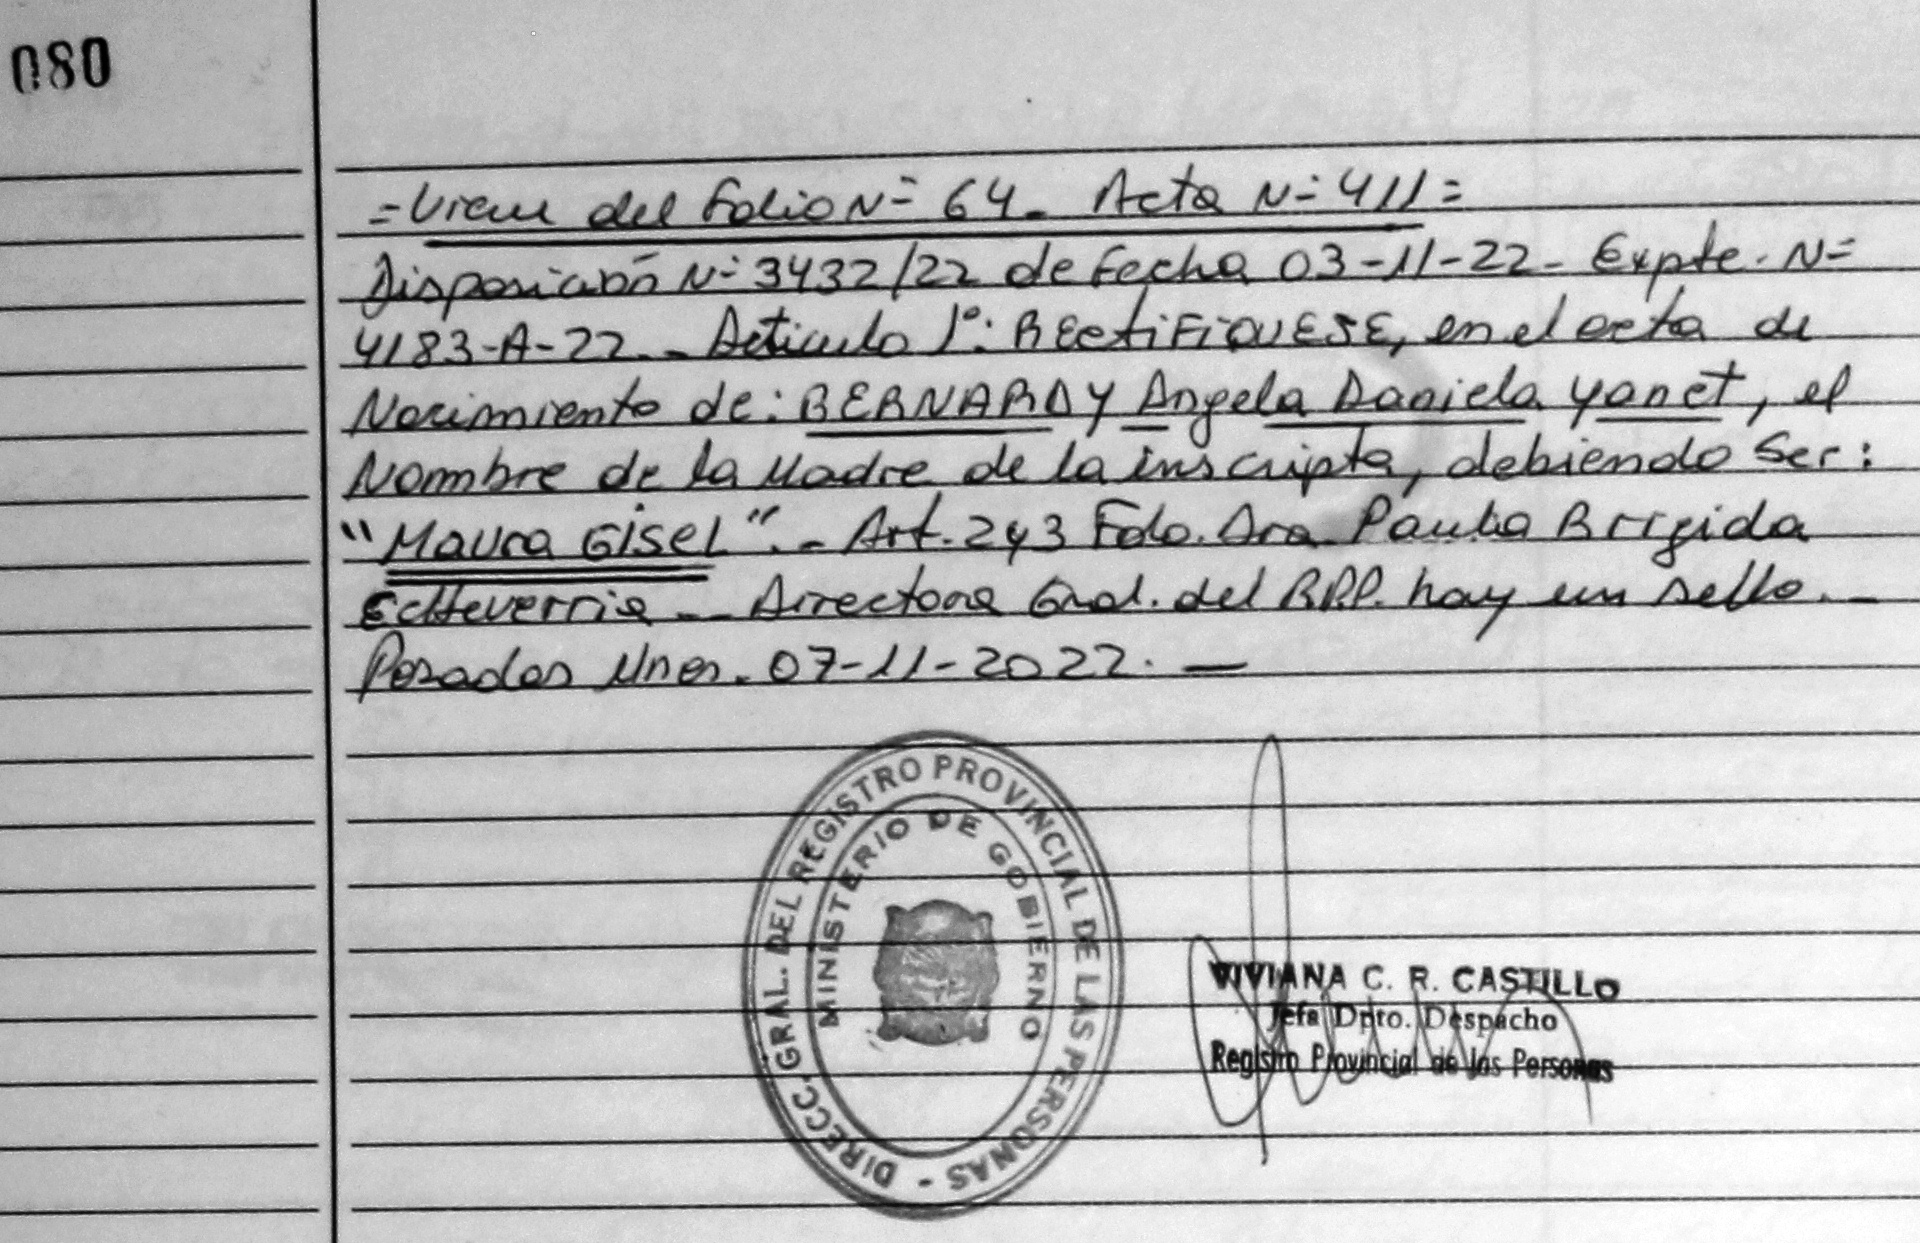 080
=Viene del Folio Nº 64. Acta Nº 411=
Disposición Nº 3432/22 de Fecha 03-11-22- Expte. Nº
4183-A-22.- Articulo 1º: RECTIFIQUESE, en el acta de
Nacimiento de: BERNARDY Angela Daniela Yanet, el
Nombre de la Madre de la inscripta, debiendo Ser:
"Maura Gisel".- Art. 243 Fdo. Dra. Paula Brigida
Echeverria - Directora Gral. del R.P.P. hay un sello.-
Posadas Mnes. 07-11-2022. -
DIRECC. GRAL. DEL REGISTRO PROVINCIAL DE LAS PERSONAS -
MINISTERIO DE GOBIERNO
VIVIANA C. R. CASTILLO
Jefa Dpto. Despacho
Registro Provincial de las Personas